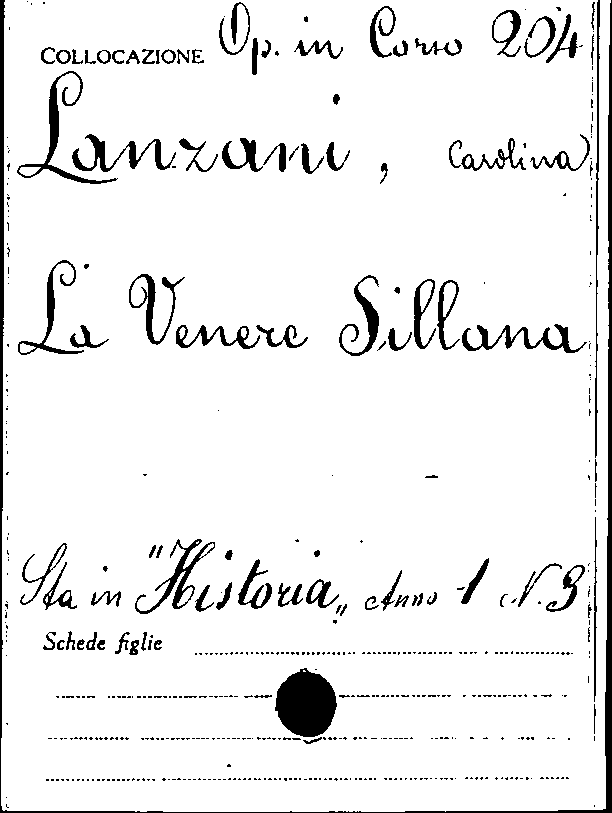 COLLOCAZIONE Op. in Corso 204
Lanzani, Carolina
La Venere Sillana
Sta in "Historia„ Anno 1 N. 3
Schede figlie